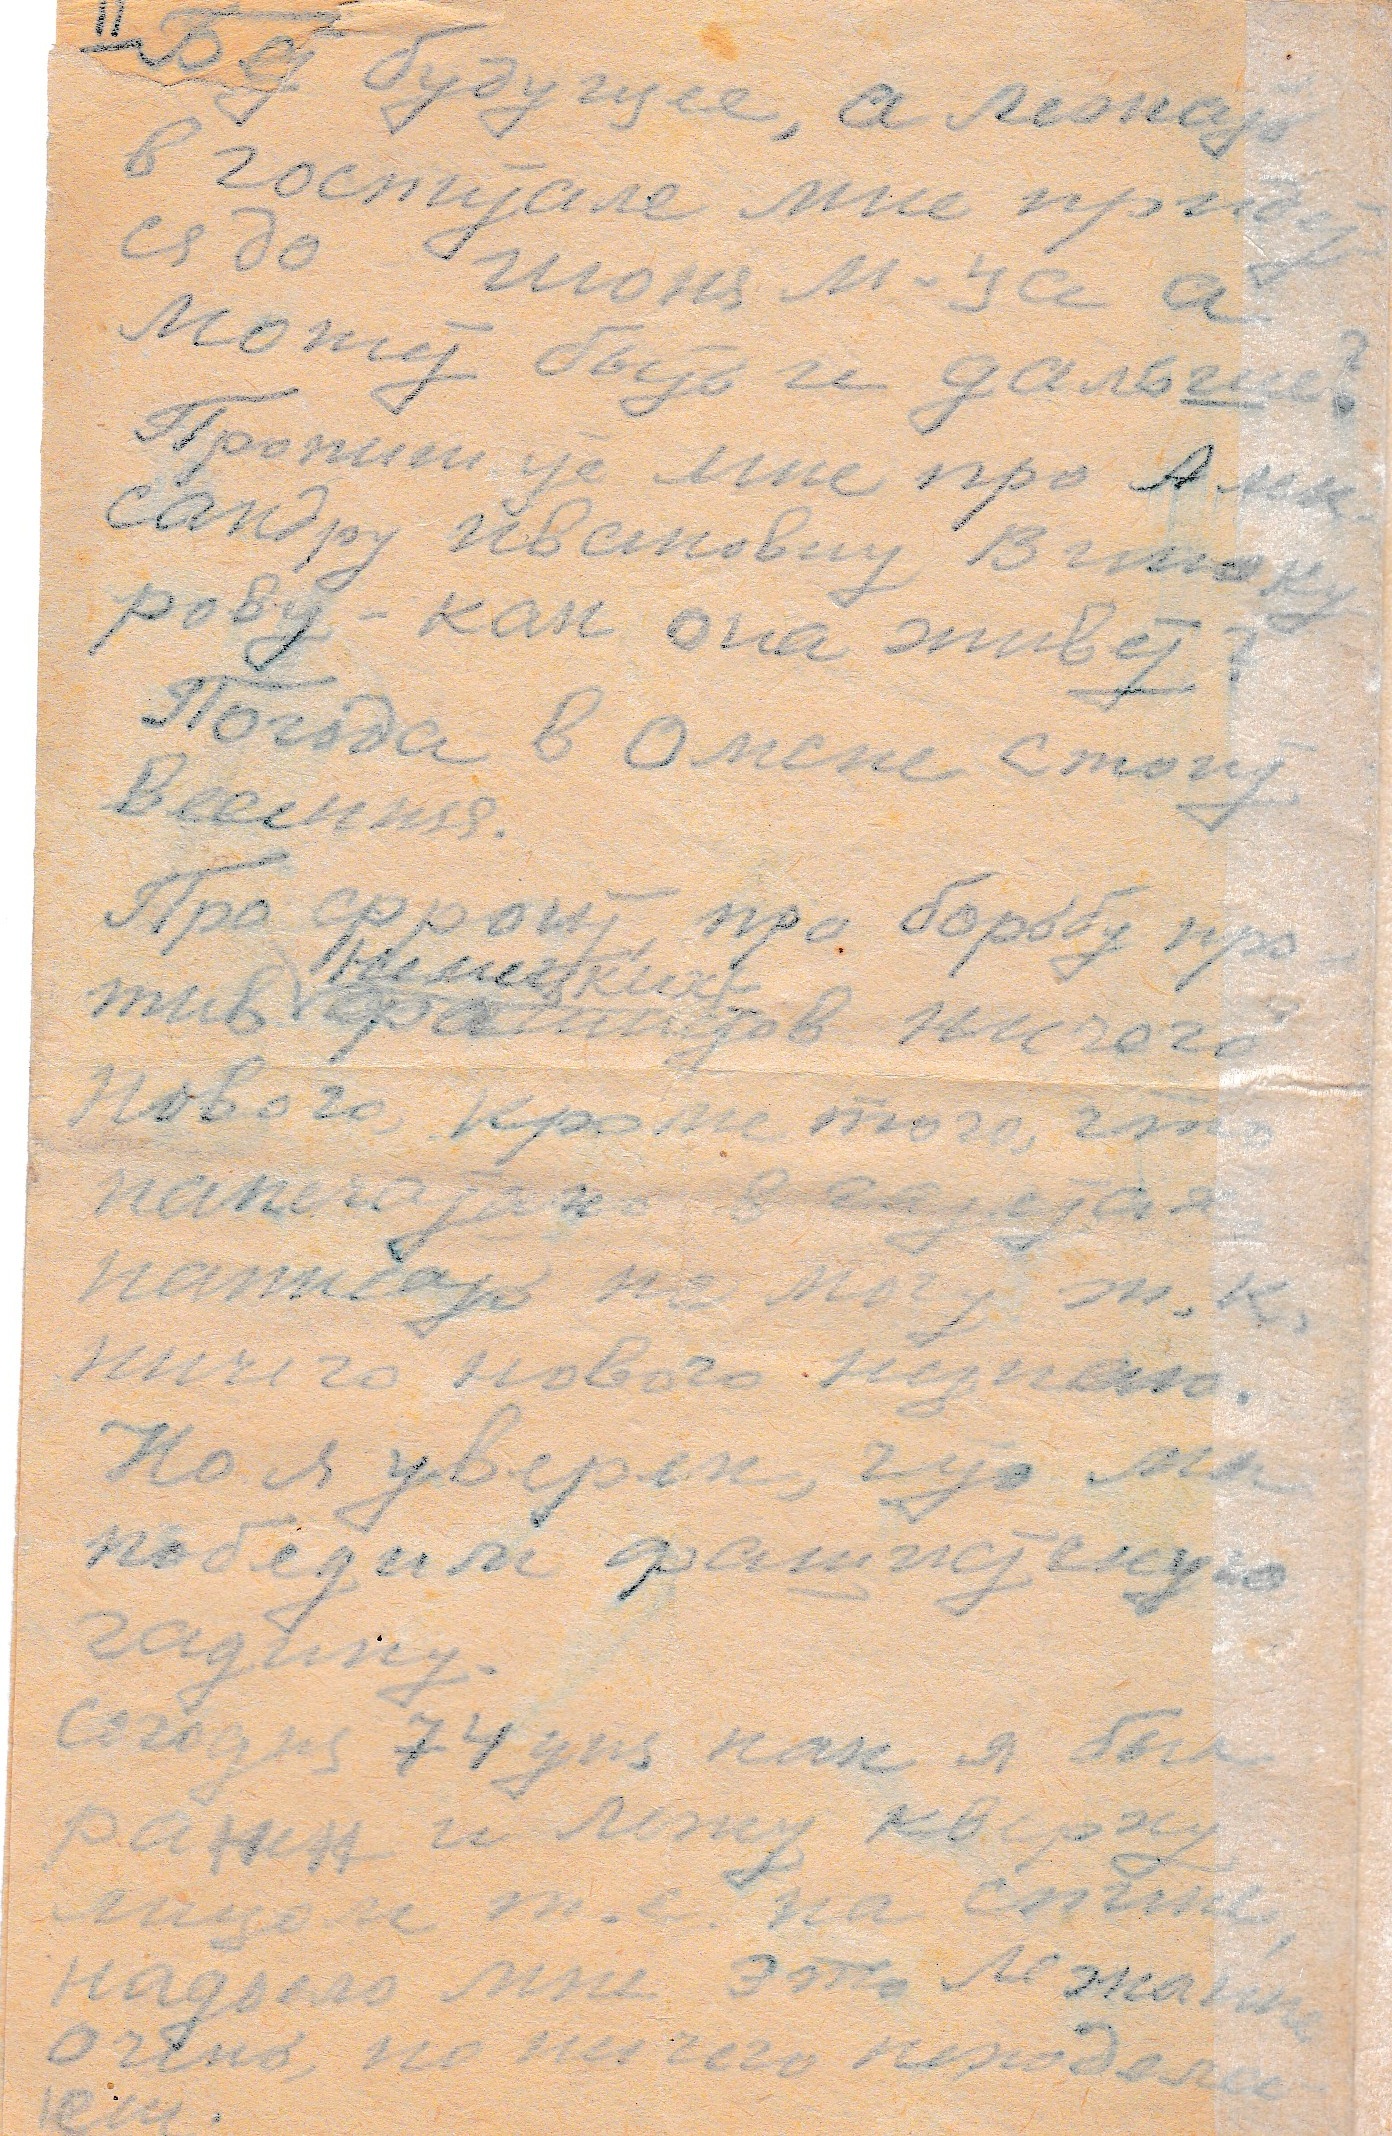 II
будущее, а лежать
в госпитале мне придет
ся до июня м-ца а
может быть и дальше?
Пропишите мне про Алек
сандру Ивановну Виноку
рову - как она живет?
Погода в Омске стоит
весенняя.
Про фронт, про борьбу про-
немецких
тив фашистов ничего
нового, кроме того, что
напечатано в газетах
написать не могу т.к.
ничего нового незнаю.
Но я уверен, что мы
победим фашистскую
гадину.
Сегодня 74 дня как я был
ранен и лежу кверху
лицом т.е. на спине,
надоело мне это лежание
очень, но ничего неподела-
еш.